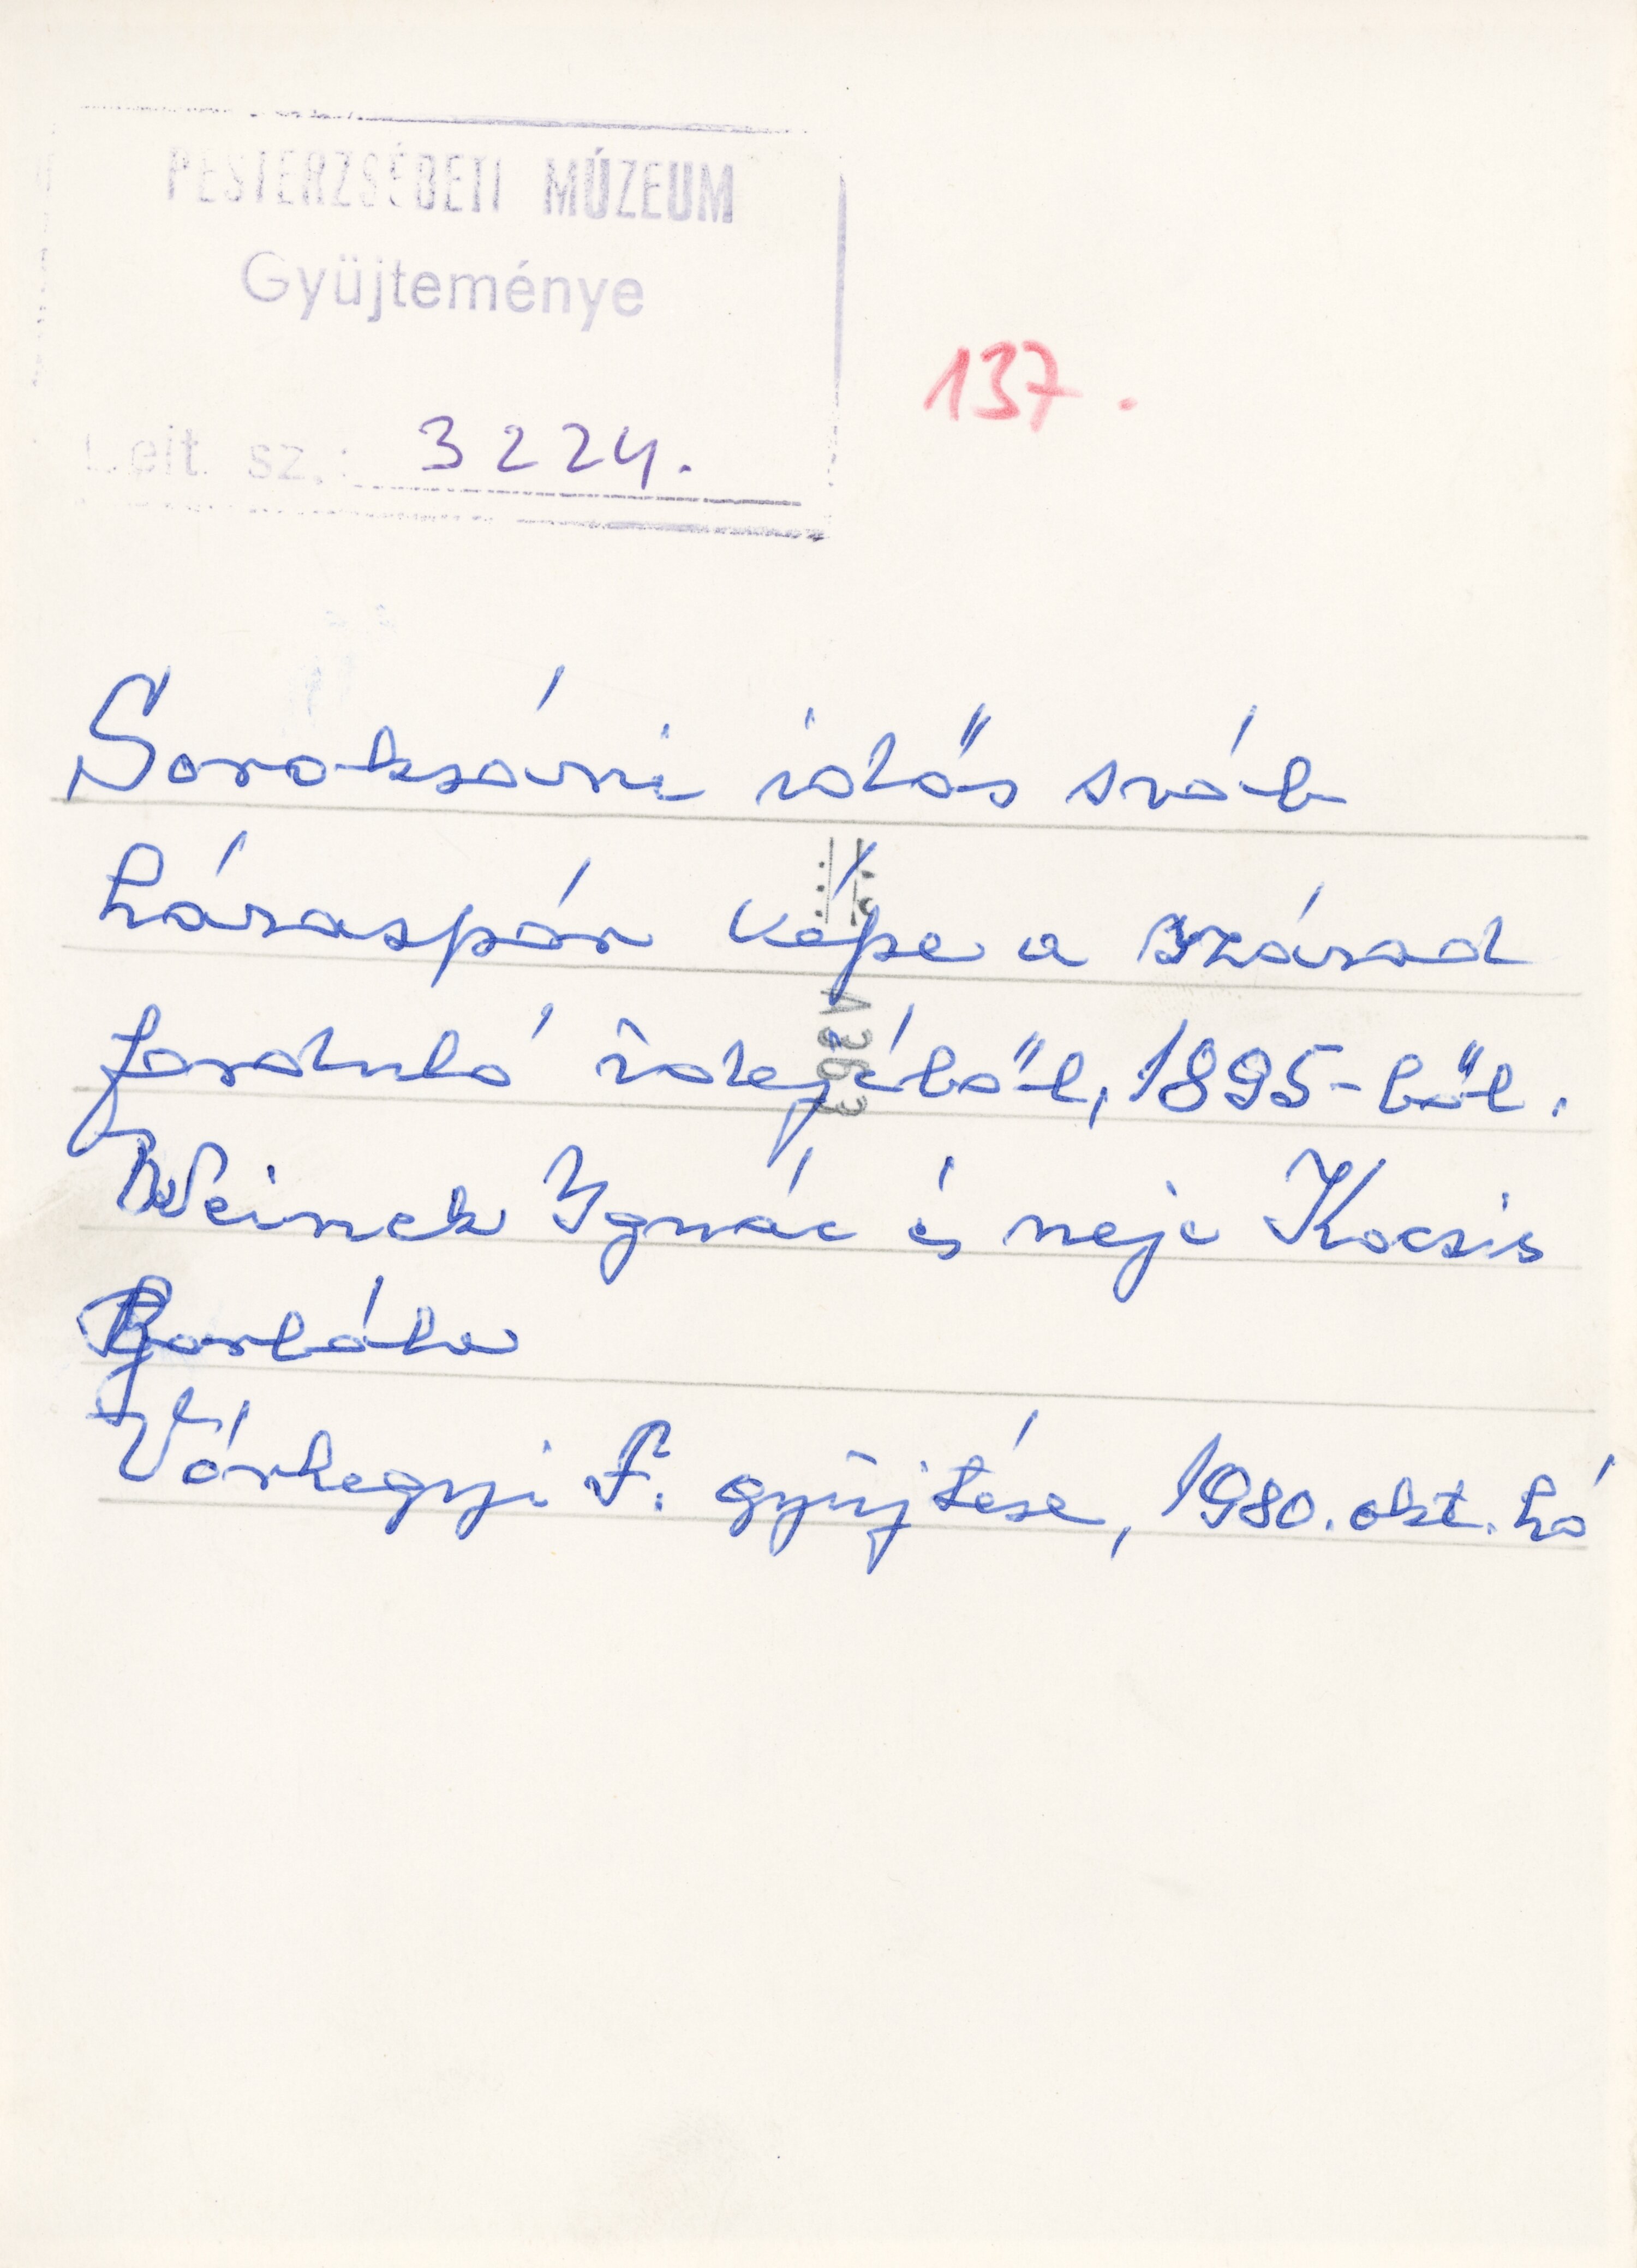 PESTERZSÉBETI MÚZEUM
Gyüjteménye
Leit. sz.: 3224.
137.
Soroksári idős sváb
házaspár képe a század
forduló idejéből, 1895-ből.
Weinek Ignác és neje Kocsis
Borbála
Várhegyi F. gyüjtése, 1980. okt. hó